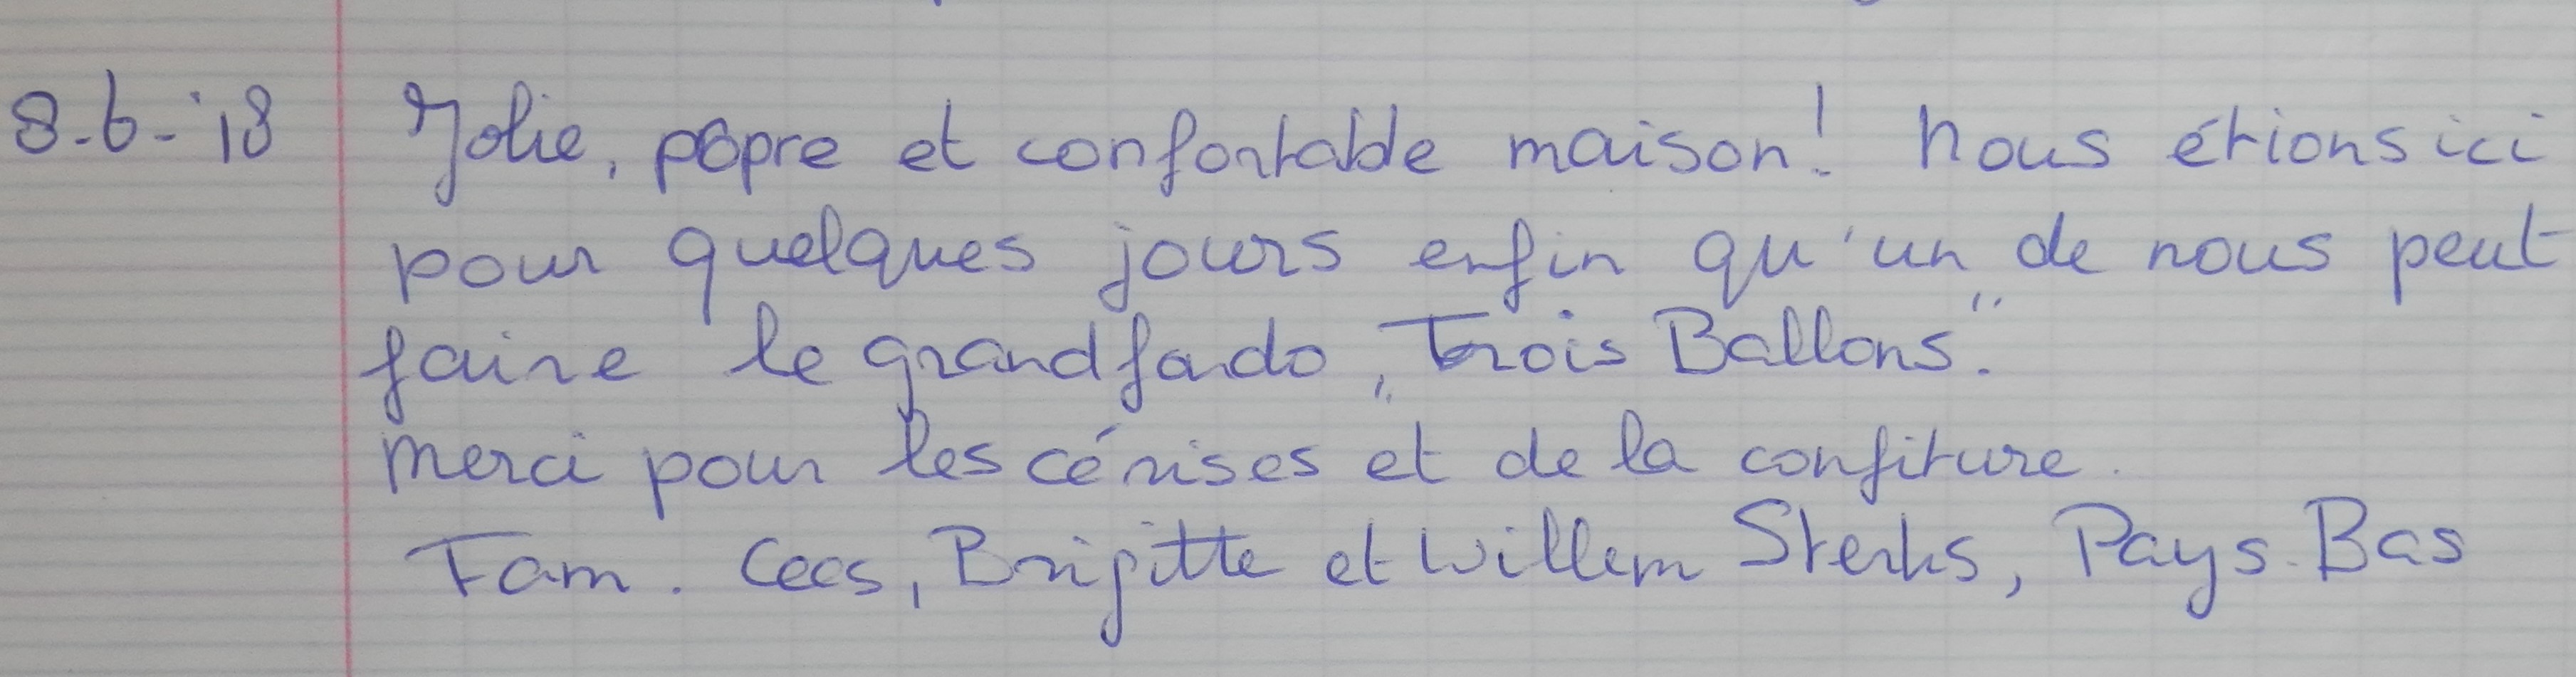 8-6-'18 Jolie, popre et confortable maison! Nous étions ici
pour quelques jours enfin qu'un de nous peut
faire le grandfondo „Trois Ballons".
Merci pour les cérises et de la confiture.
Fam. Cees, Brigitte et Willem Sterks, Pays-Bas